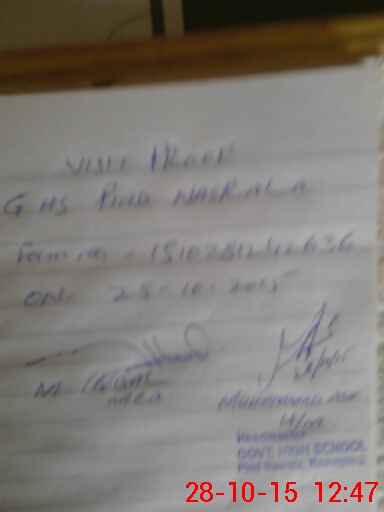 VISIT PROOF
GHS PIND NASRALA
Form no - 1510281242636
ON - 28-10-2015
M. IQBAL
MEA
MUHAMMAD
H/M
Headmaster
GOVT. HIGH SCHOOL
28-10-15 12:47